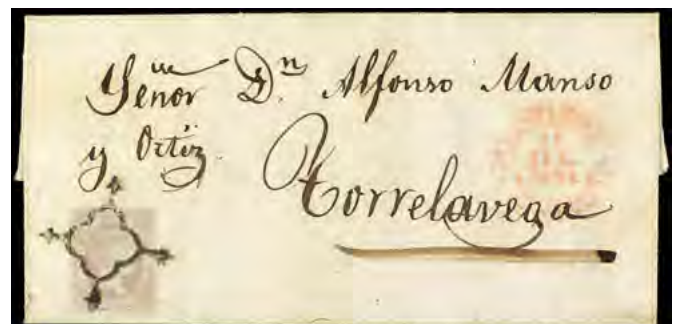 Señor Dn. Alfonso Manso
y Ortiz.
Torrelavega